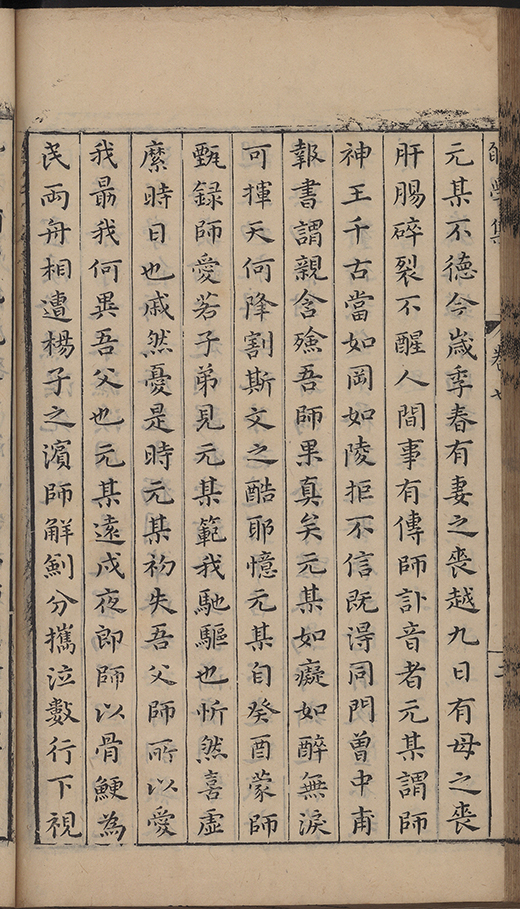 學集 卷七 三
元某不德今歲季春有妻之喪越九日有母之喪
肝腸碎裂不醒人間事有傳師訃音者元某謂師
神王千古當如岡如陵拒不信既得同門曾中甫
報書謂親含殮吾師果真矣元某如癡如醉無淚
可揮天何降割斯文之酷耶憶元某自癸酉蒙師
甄録師愛若子弟見元某範我馳驅也忻然喜虛
縻時日也戚然憂是時元某初失吾父師所以愛
我最我何異吾父也元某遠戍夜郎師以骨鯁為
民兩舟相遭楊子之濵師解劍分攜泣數行下視